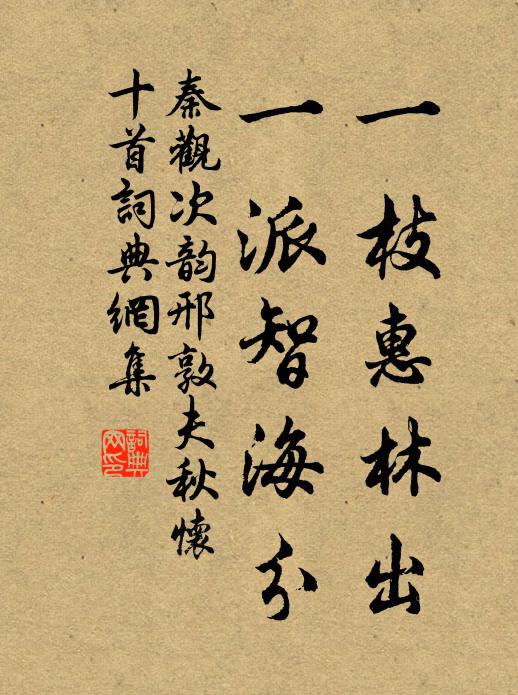 一枝惠林出
一派智海分
秦觀次韵邢敦夫秋懷
十首詞典網集
詞典
网印